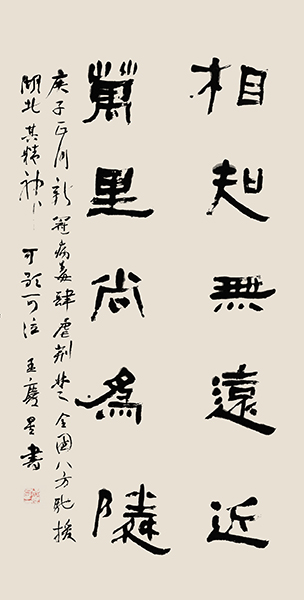 相知無遠近
萬里尚為隣
庚子正月新冠病毒肆虐荆楚全國八方馳援
湖北其精神可歌可泣 孟慶星書